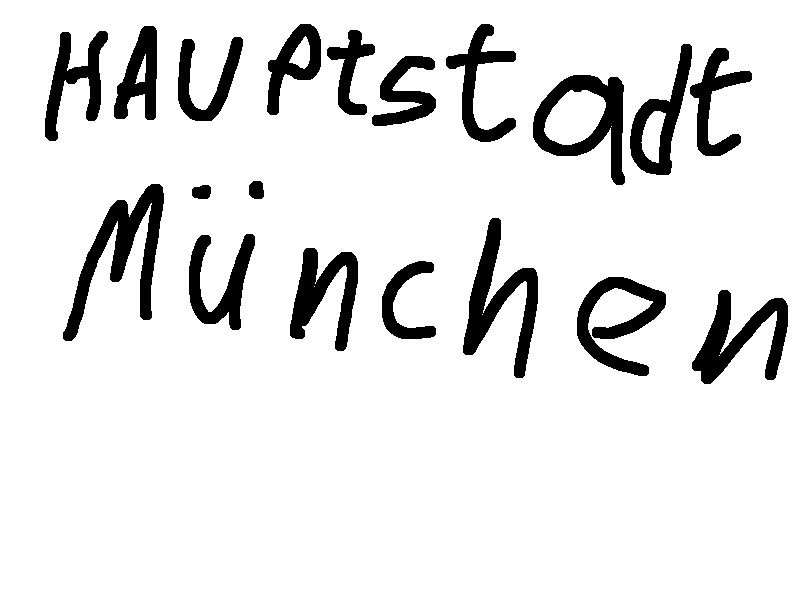 HAUPtstadt
München